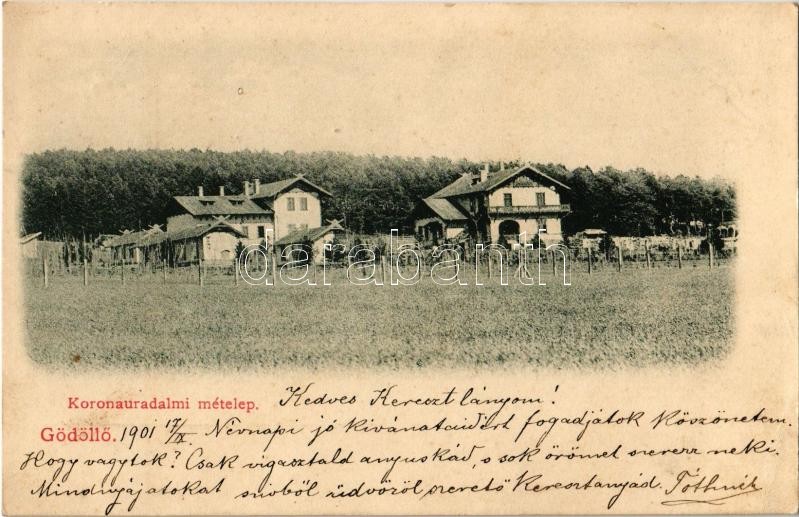 darabanth
Koronauradalmi mételep.
Kedves Keresztlányom!
Gödöllő. 1901 17/IX. Névnapi jó kivánataidért fogadjátok köszönetem.
Hogy vagytok? Csak vigasztald anyuskád, s sok örömet szerezz neki.
Mindnyájatokat szivből üdvözöl szerető Keresztanyád. Tóthnét